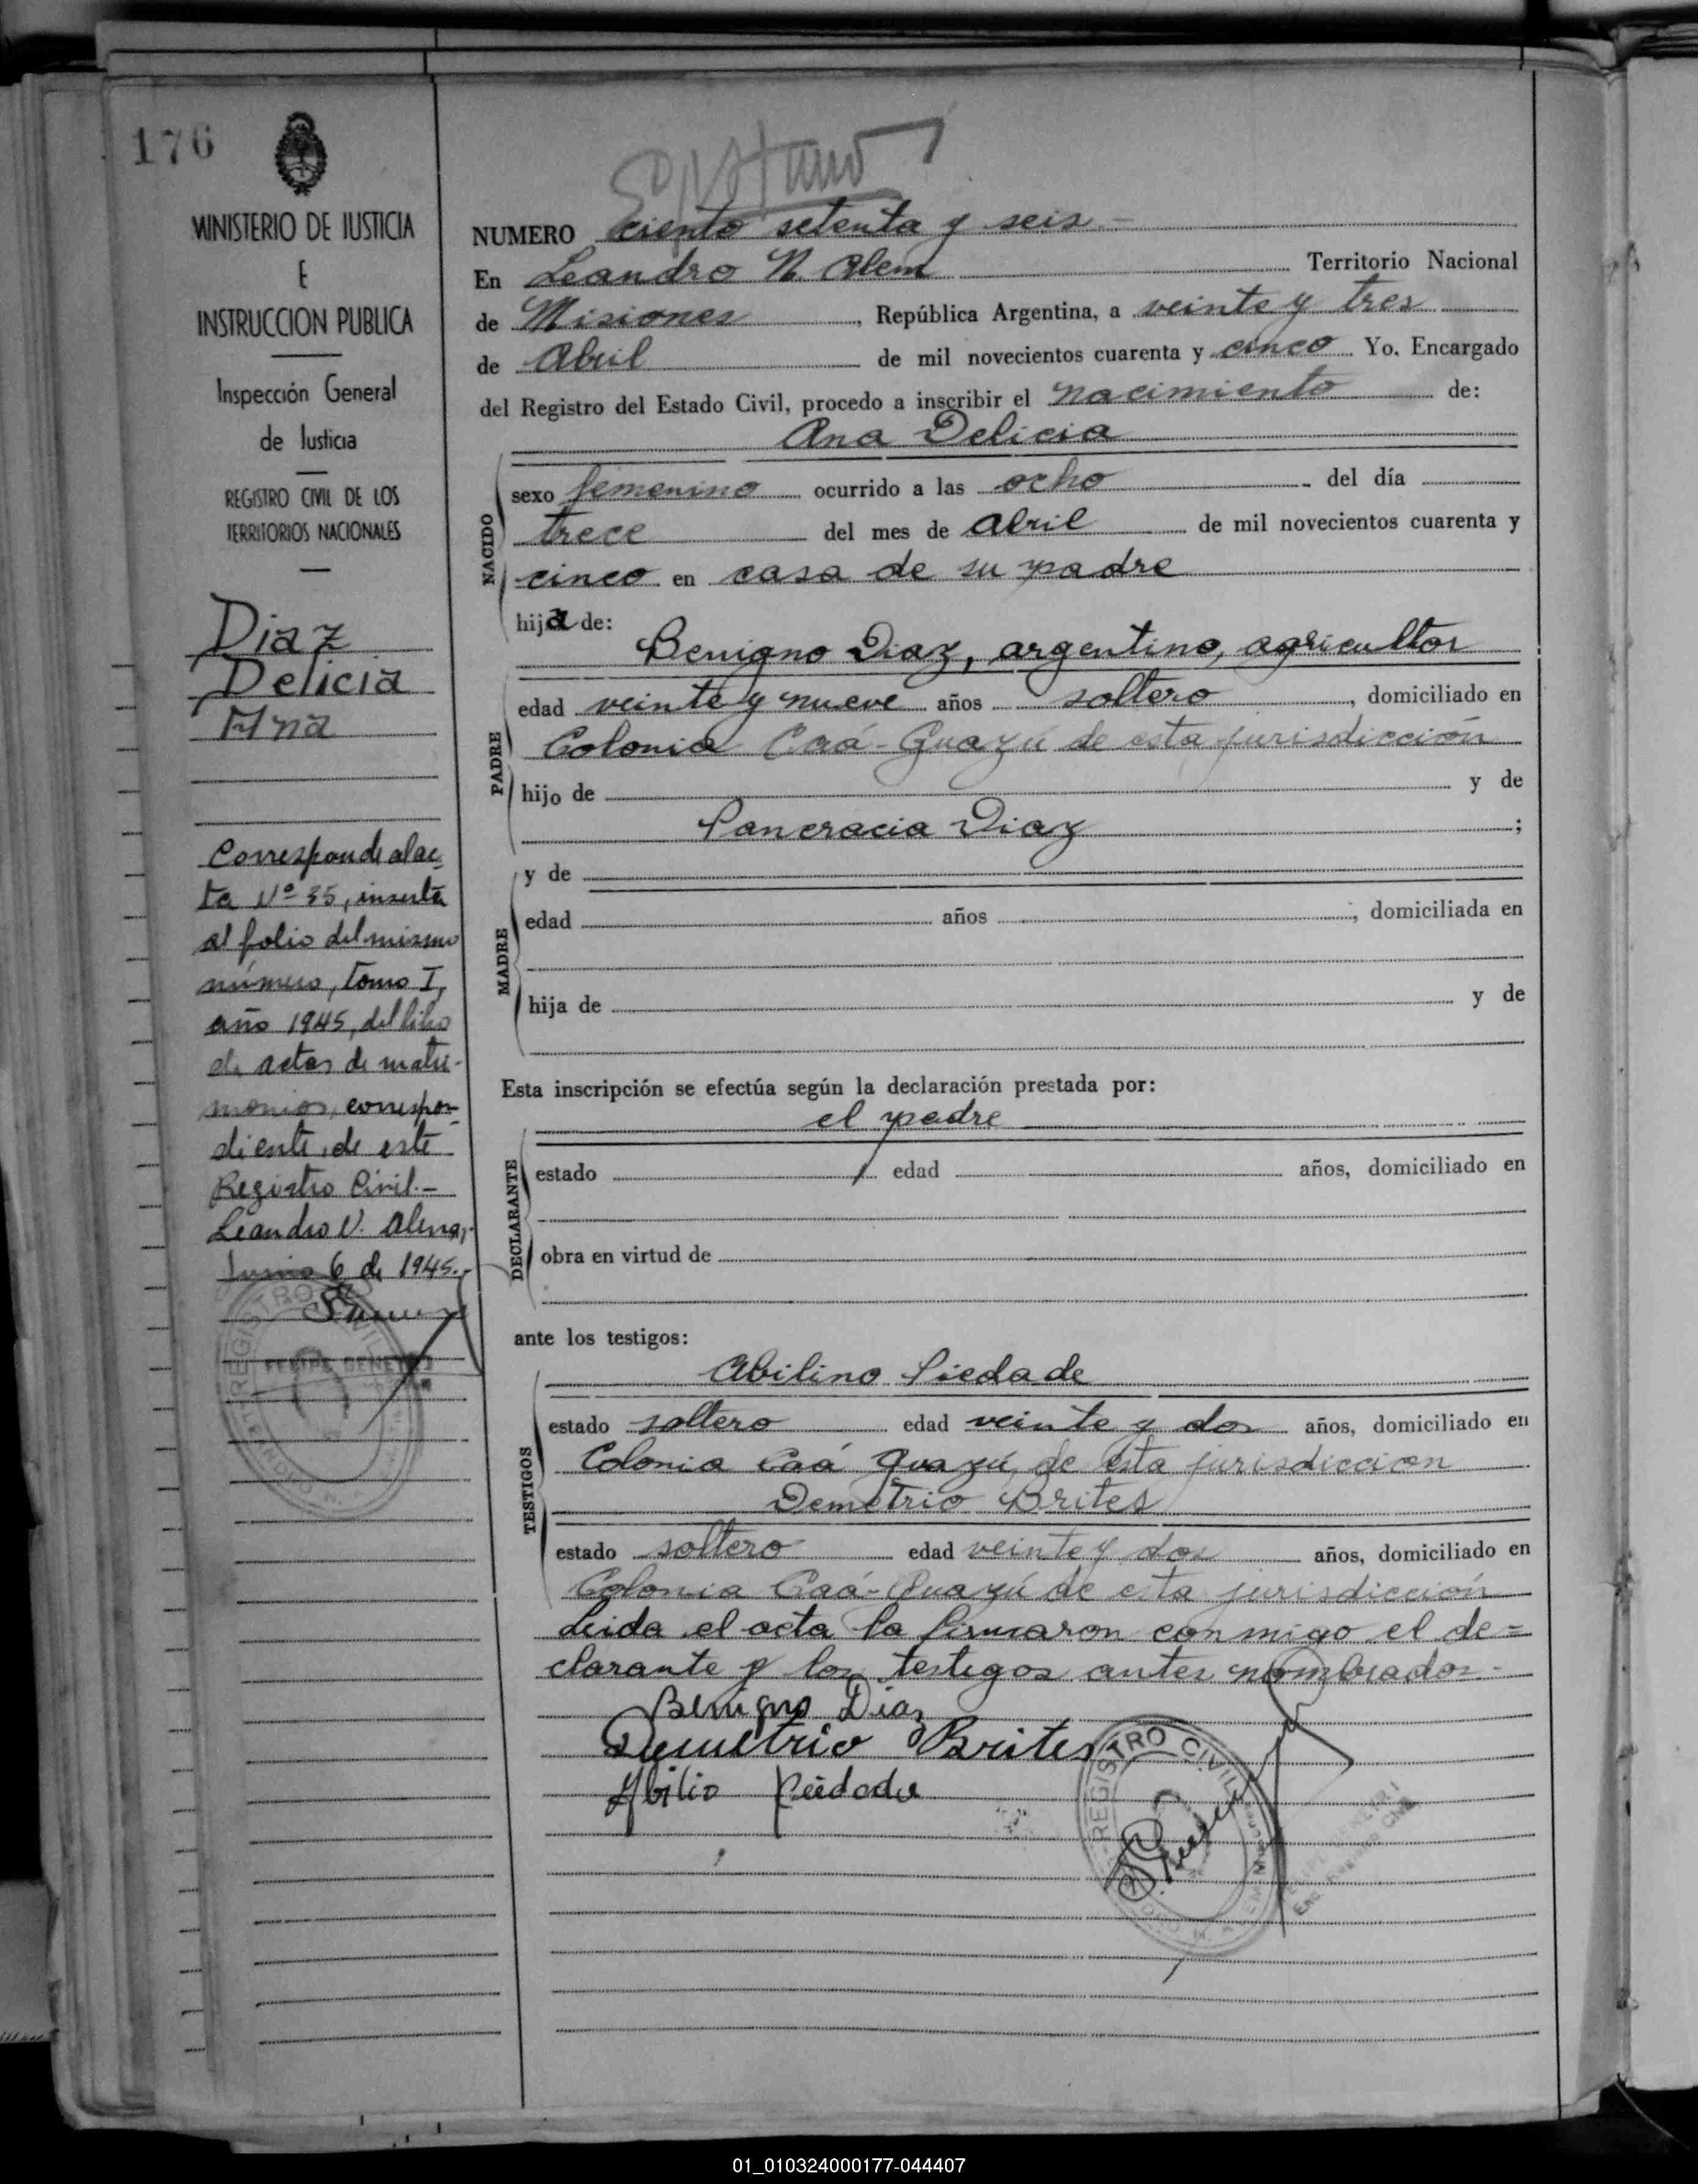 176
MINISTERIO DE JUSTICIA
E
INSTRUCCION PUBLICA
Inspección General
de Justicia
REGISTRO CIVIL DE LOS
TERRITORIOS NACIONALES
Diaz
Delicia
Ana
Corresponde al ac-
ta Nº 35, inserta
al folio del mismo
número, tomo I,
año 1945, del libro
de actas de matri-
monios, correspon-
diente, de este
Registro Civil.-
Leandro N. Alem,
Junio 6 de 1945.-
REGISTRO CIVIL
NUMERO ciento setenta y seis-
En Leandro N. Alem Territorio Nacional
de Misiones, República Argentina, a veinte y tres
de Abril de mil novecientos cuarenta y cinco Yo. Encargado
del Registro del Estado Civil, procedo a inscribir el nacimiento de:
Ana Delicia
NACIDO
sexo femenino ocurrido a las ocho del día
trece del mes de Abril de mil novecientos cuarenta y
cinco en casa de su padre
hija de:
Benigno Diaz, argentino, agricultor
PADRE
edad veinte y nueve años soltero, domiciliado en
Colonia Caá-Guazú de esta jurisdicción
hijo de y de
Pancracia Diaz ;
MADRE
y de
edad años ; domiciliada en
hija de y de
Esta inscripción se efectúa según la declaración prestada por:
el padre
DECLARANTE
estado edad años, domiciliado en
obra en virtud de
ante los testigos:
Abilino Piedade
TESTIGOS
estado soltero edad veinte y dos años, domiciliado en
Colonia Caá Guazú, de esta jurisdiccion
Demetrio Brites
estado soltero edad veinte y dos años, domiciliado en
Colonia Caá-Guazú de esta jurisdicción
Leida el acta la firmaron conmigo el de=
clarante y los testigos antes nombrados.-
Benigno Diaz
Demetrio Brites
Abilio Piedade
REGISTRO CIVIL
01_010324000177-044407